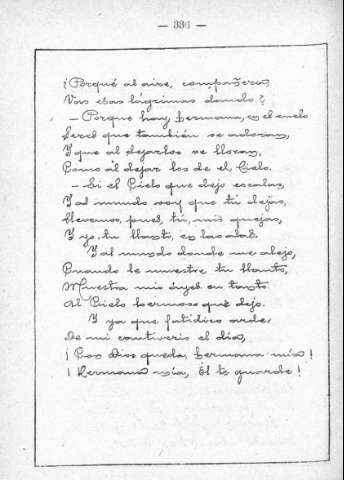 — 336 —
¿Porqué al aire, compañera,
Vas esas lágrimas dando?
— Porque hay, hermana, en el suelo
Seres que también se adoran,
Y que al dejarlos se lloran,
Como al dejar los de el Cielo.
— Si el Cielo que dejo escalas,
Y al mundo voy que tú dejas,
Llevemos, pues, tú, mis quejas,
Y yo, tu llanto, en las alas.
Y al mundo donde me alejo,
Cuando le muestre tu llanto,
Muestra mis en tanto
Al Cielo hermoso que dejo.
Y ya que fatídico arde
De mi cautiverio el día,
¡Con Dios queda, hermana mía!
¡Hermana mía, Él te guarde!